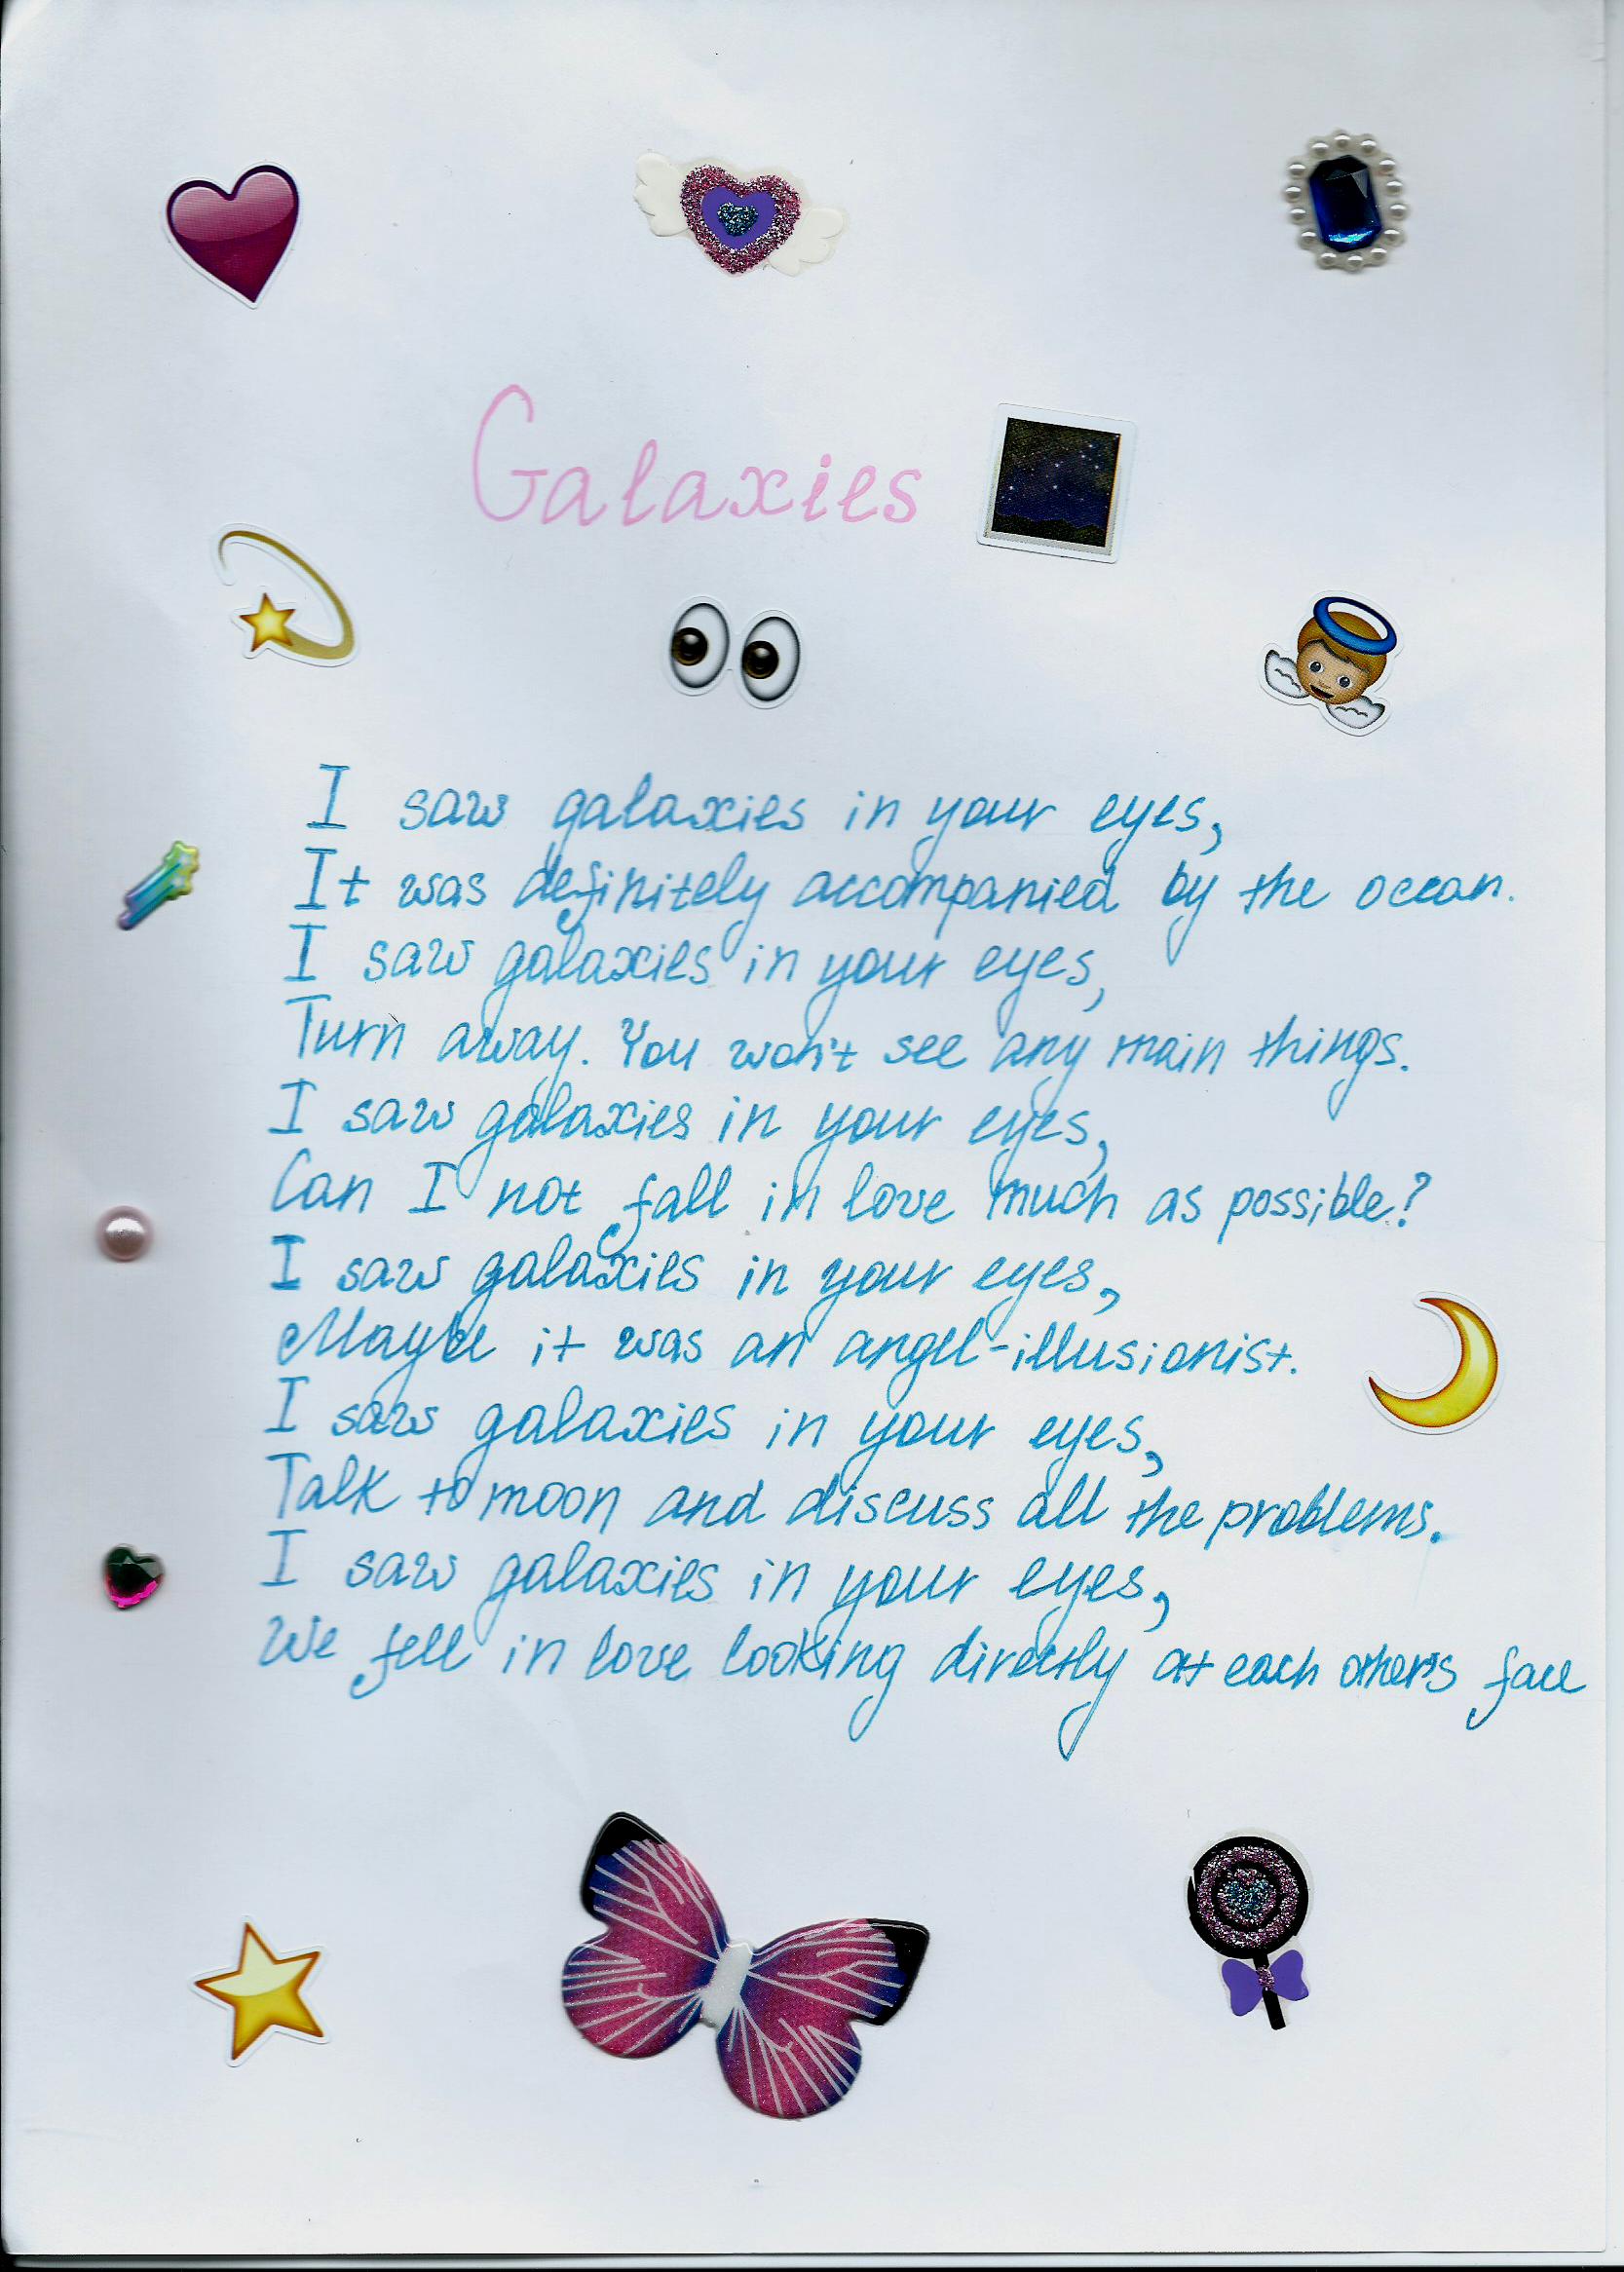 Galaxies
I saw galaxies in your eyes,
It was definitely accompanied by the ocean.
I saw galaxies in your eyes,
Turn away. You won't see any main things.
I saw galaxies in your eyes,
Can I not fall in love much as possible?
I saw galaxies in your eyes,
Maybe it was an angel-illusionist.
I saw galaxies in your eyes,
Talk to moon and discuss all the problems.
I saw galaxies in your eyes,
We fell in love looking directly at each other's face